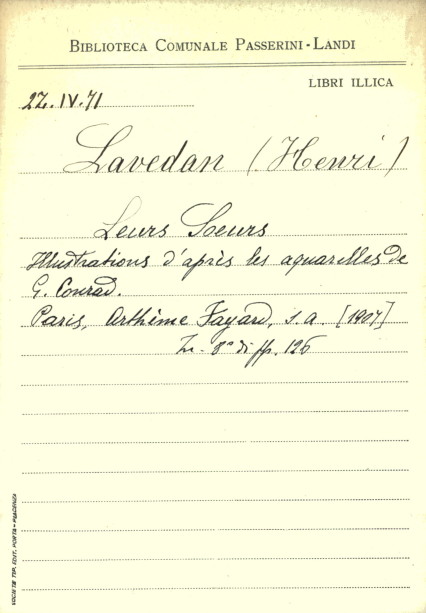 BIBLIOTECA COMUNALE PASSERINI-LANDI
LIBRI ILLICA
22.IV.71
Lavedan (Henri)
Leurs Sœurs
Illustrations d'après les aquarelles de
G. Conrad.
Paris, Arthème Fayard, s.a. [1907]
In-8° di pp. 126
SOCIETÀ TIP. EDIT. PORTA - PIACENZA